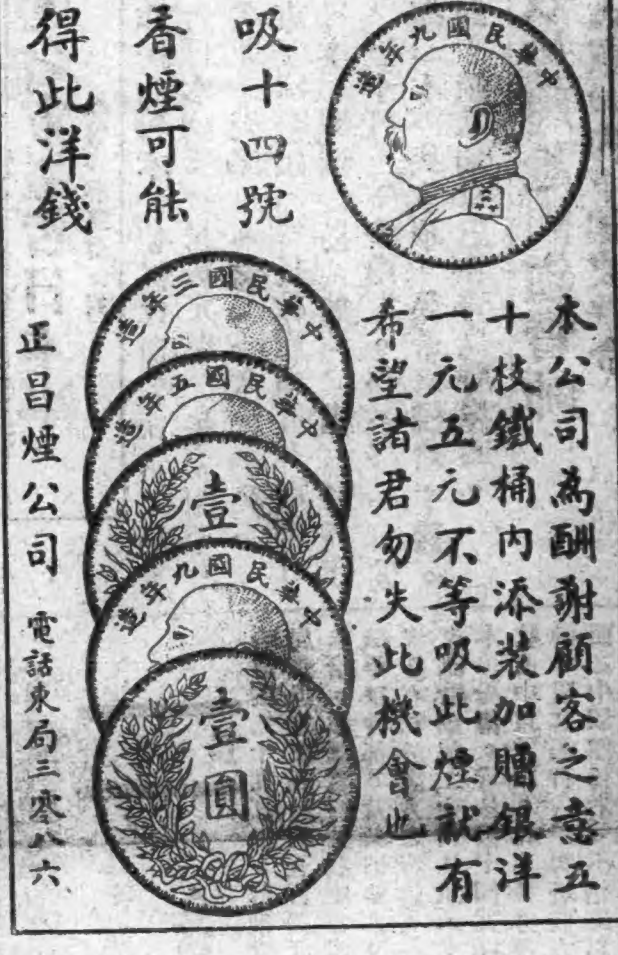 中華民國九年造
吸十四號
香煙可能
得此洋錢
本公司為酬謝顧客之意五
十枝鐵桶內添裝加贈銀洋
一元五元不等吸此煙就有
希望諸君勿失此機會也
中華民國三年造
中華民國五年造
壹
中華民國九年造
壹圓
正昌煙公司 電話東局三零八六